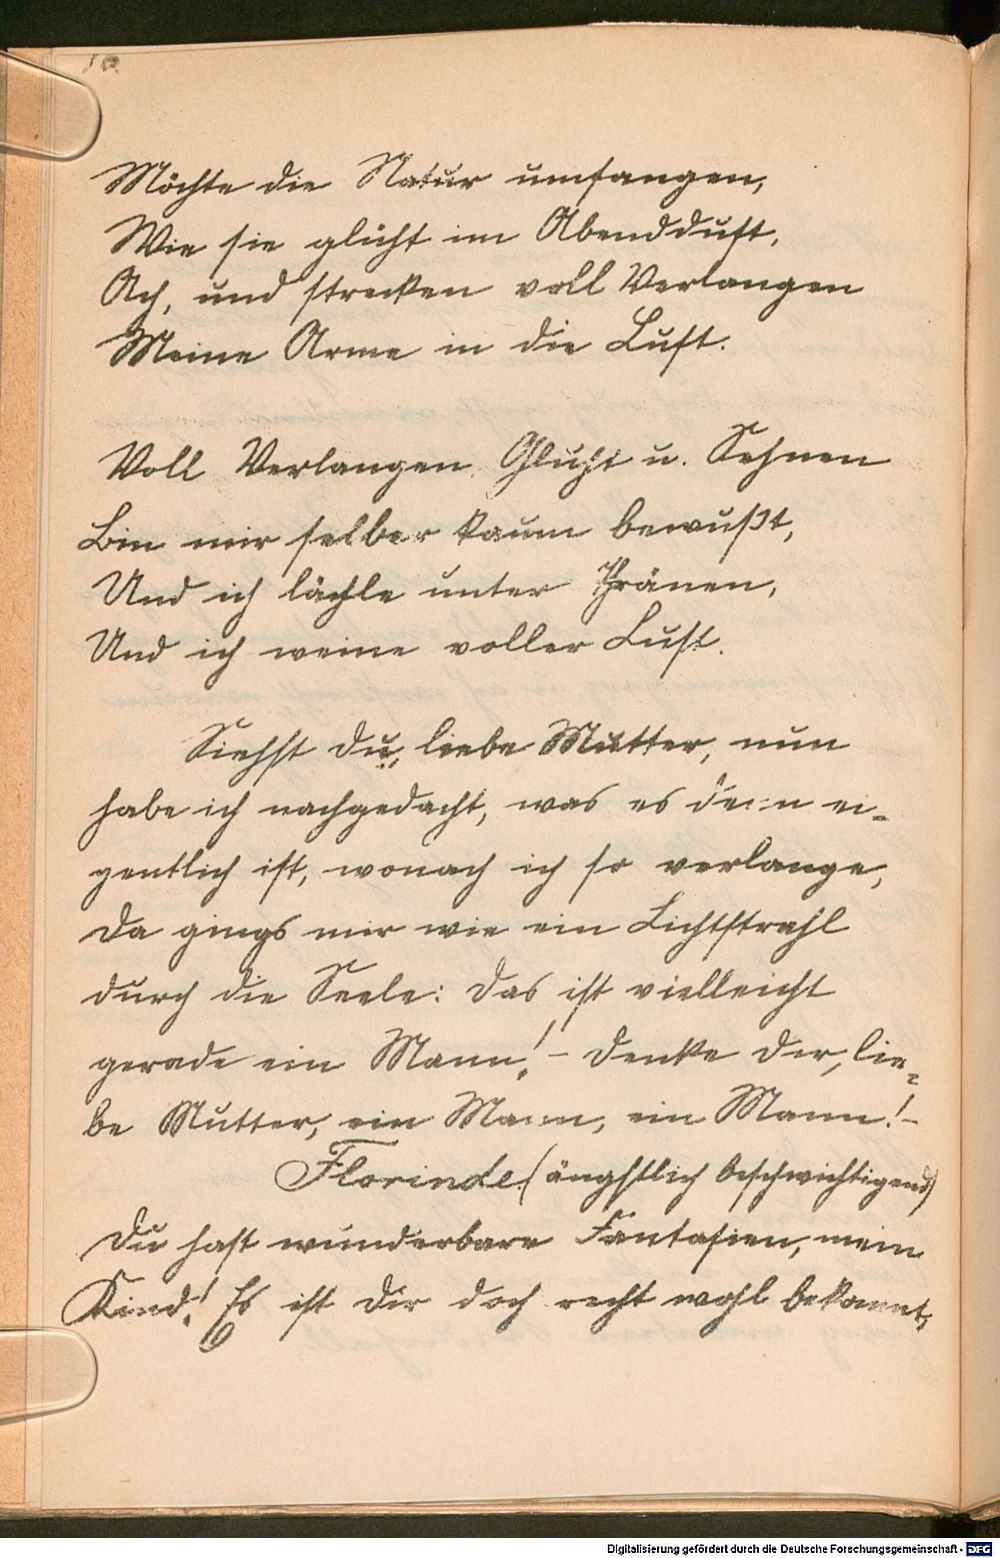 10
Möchte die Natur umfangen,
Wie sie glüht im Abendduft,
Ach, und strecken voll Verlangen
Meine Arme in die Luft.
Voll Verlangen, Gluht u. Sehnen
Bin mir selber kaum bewußt,
Und ich lächle unter Thränen,
Und ich weine voller Lust.
Siehst du, liebe Mutter, nun
habe ich nachgedacht, was es denn ei-
gentlich ist, wonach ich so verlange,
da gings mir wie ein Lichtstrahl
durch die Seele: das ist vielleicht
gerade ein Mann! – denke dir, lie-
be Mutter, ein Mann, ein Mann! –
Florinde (ängstlich beschwichtigend)
Du hast wunderbare Fantasien, mein
Kind! Es ist dir doch recht wohl bekannt,
Digitalisierung gefördert durch die Deutsche Forschungsgemeinschaft - DFG